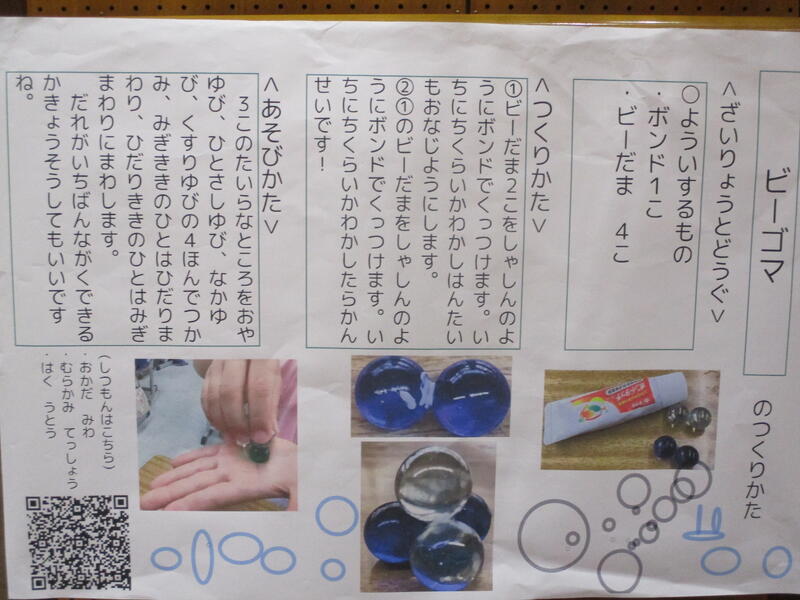 ビーゴマ
のつくりかた
<ざいりょうとどうぐ>
〇よういするもの
・ボンド1こ
・ビーだま 4こ
<つくりかた>
①ビーだま2こをしゃしんのよ
うにボンドでくっつけます。い
ちにちくらいかわかしはんたい
もおなじようにします。
②①のビーだまをしゃしんのよ
うにボンドでくっつけます。い
ちにちくらいかわかしたらかん
せいです！
<あそびかた>
3このたいらなところをおや
ゆび、ひとさしゆび、なかゆ
び、くすりゆびの4ほんでつか
み、みぎききのひとはひだりま
わり、ひだりききのひとはみぎ
まわりにまわします。
だれがいちばんながくできる
かきょうそうしてもいいです
ね。
(しつもんはこちら)
・おかだ みわ
・むらかみ てっしょう
・はく うとう